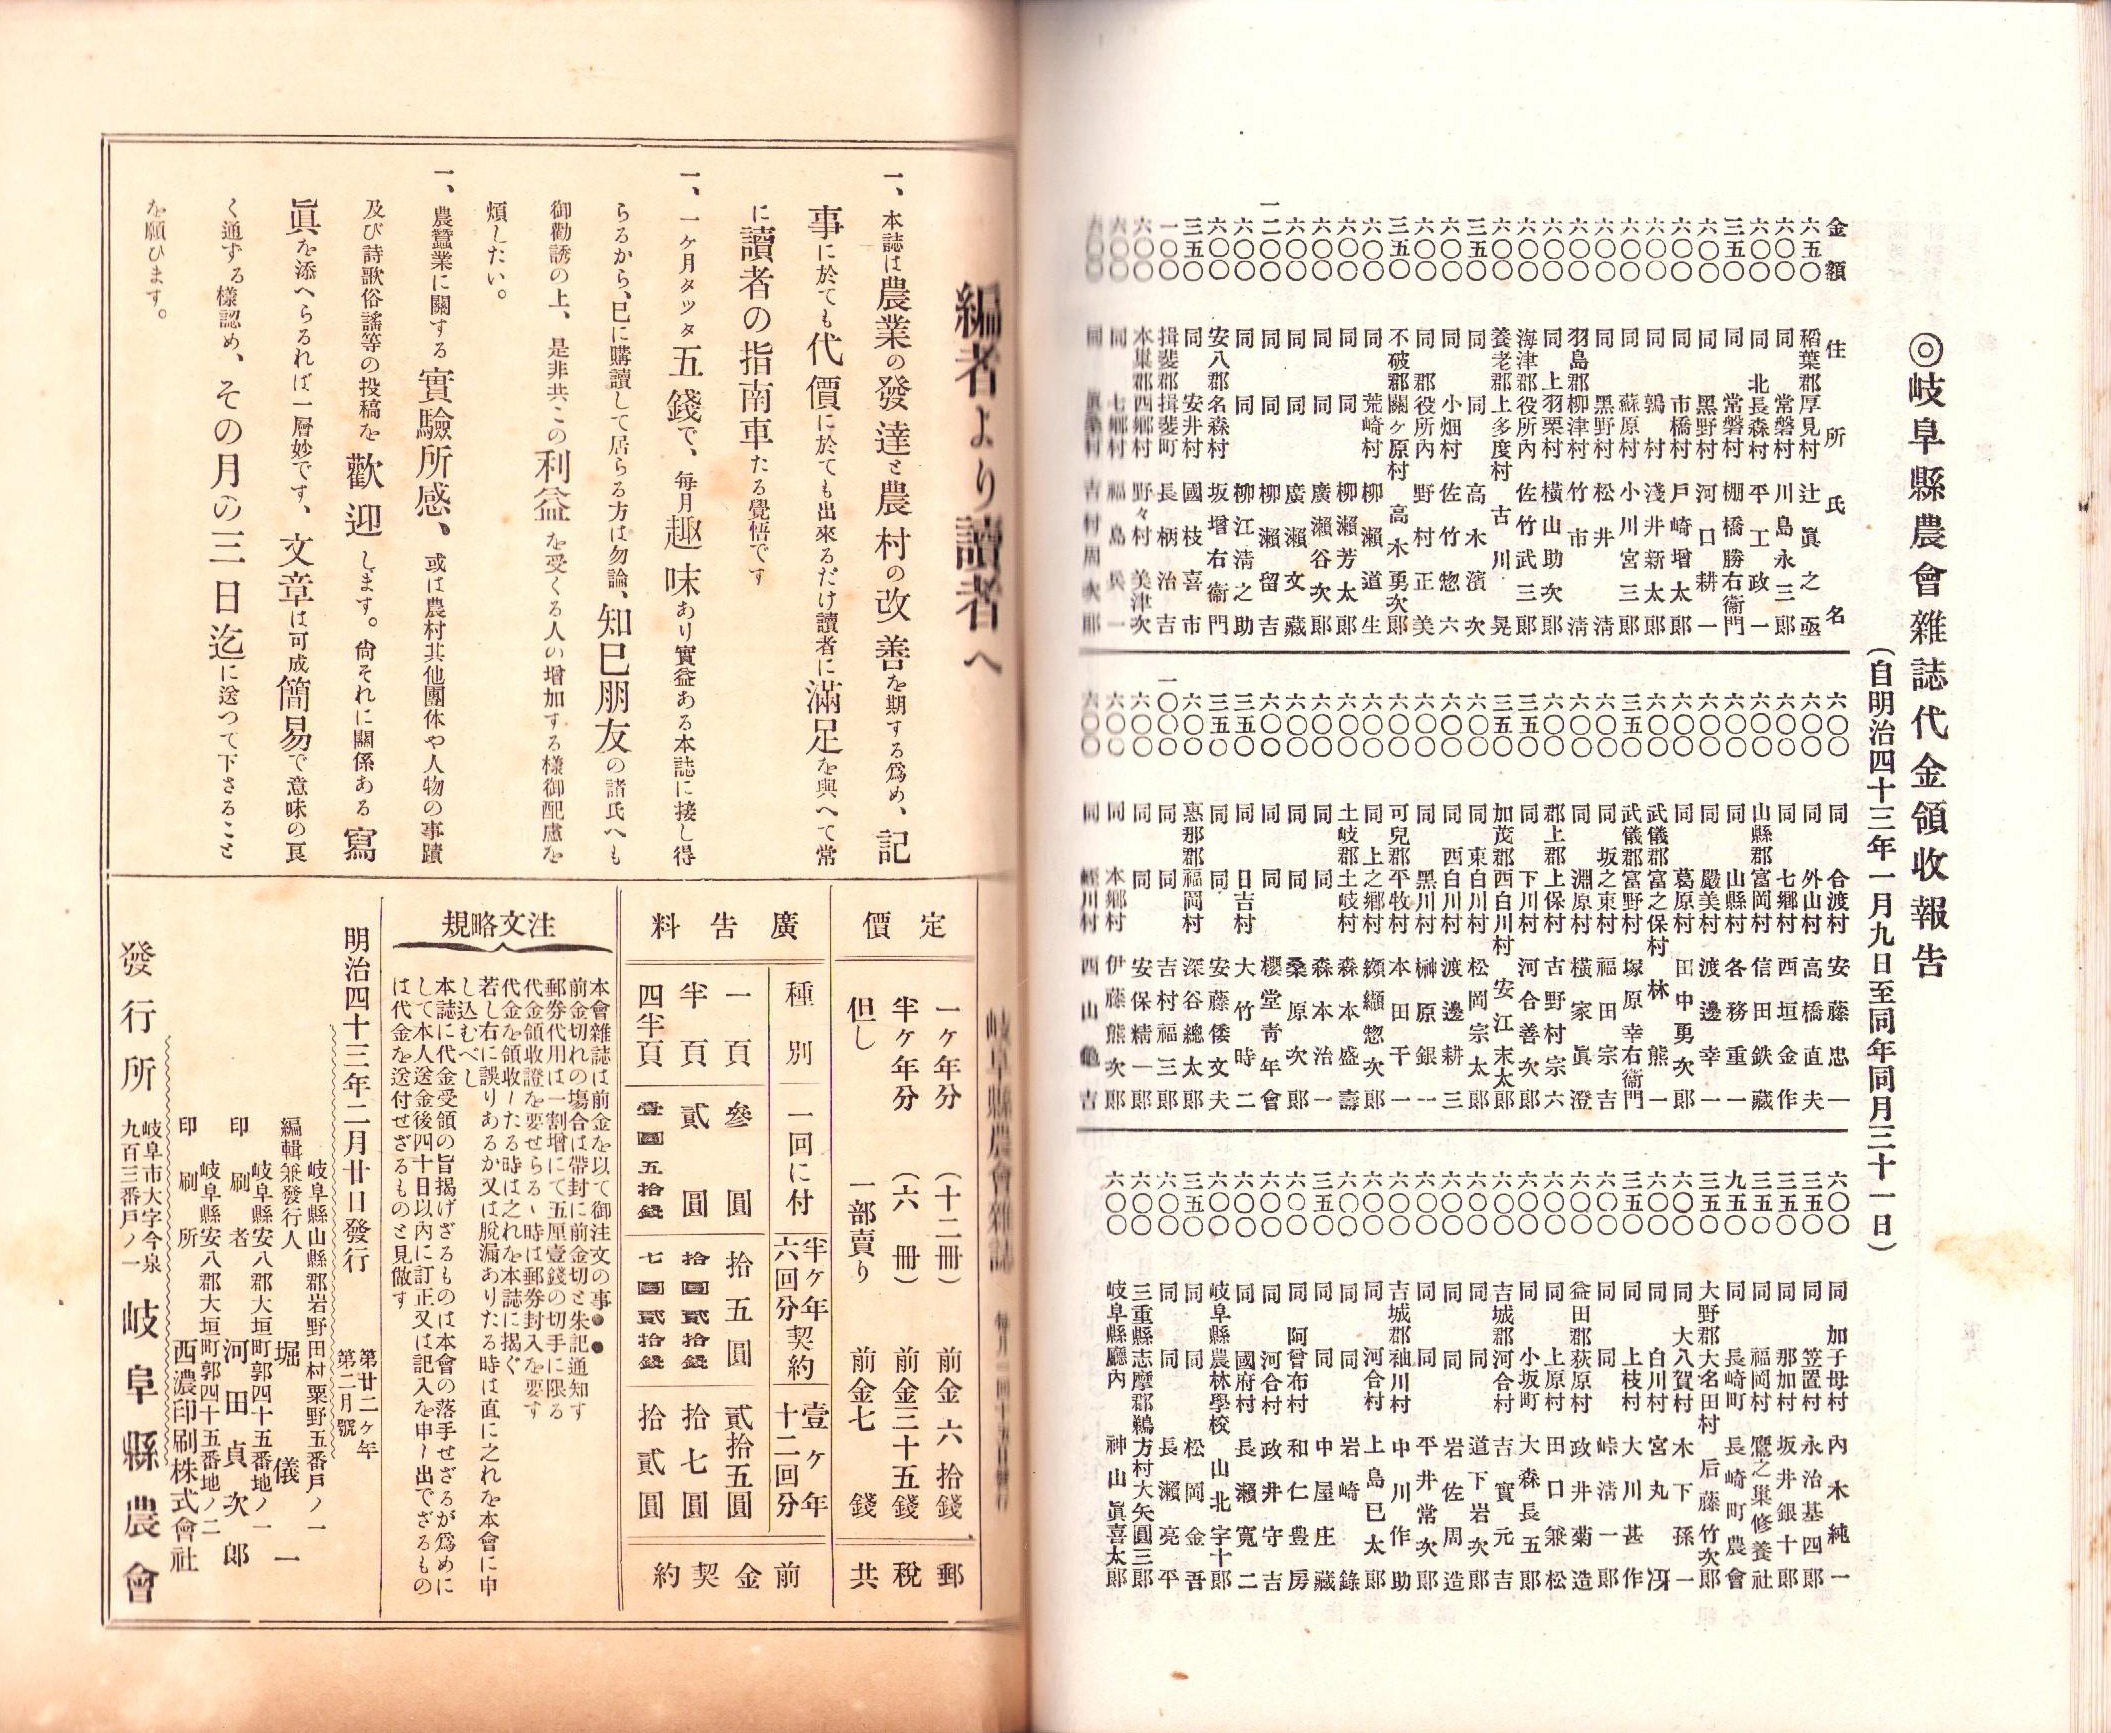 ◎岐阜縣農會雜誌代金領收報告
(自明治四十三年一月九日至同年同月三十一日)
金額 住所 氏名
六五〇 稻葉郡厚見村 辻眞之亟
六〇〇 同 常磐村 川島永三郎
六〇〇 同 北長森村 平工政一
三五〇 同 常磐村 棚橋勝右衞門
六〇〇 同 黑野村 河口耕一
六〇〇 同 市橋村 戸崎增太郎
六〇〇 同 鶉村 淺井新太郎
六〇〇 同 蘇原村 小川宮三郎
六〇〇 同 黑野村 松井清
六〇〇 羽島郡柳津村 竹市清
六〇〇 同 上羽栗村 横山助次郎
六〇〇 海津郡役所内 佐竹武三郎
六〇〇 養老郡上多度村 古川晃
三五〇 同 同 高木濱次
六〇〇 同 小畑村 佐竹惣六
六〇〇 同 郡役所内 野村正美
三五〇 不破郡關ヶ原村 高木勇次郎
六〇〇 同 荒崎村 柳瀨道生
六〇〇 同 同 柳瀨芳太郎
六〇〇 同 同 廣瀨谷次郎
六〇〇 同 同 廣瀨文藏
一二〇〇 同 同 柳瀨留吉
六〇〇 同 同 柳江淸之助
六〇〇 安八郡名森村 坂增右衞門
三五〇 同 安井村 國枝喜市
一〇〇 揖斐郡揖斐町 長柄治吉
六〇〇 本巢郡西郷村 野々村美津次
六〇〇 同 七郷村 福島兵一
六〇〇 同 眞桑村 吉村周次郎
六〇〇 同 合渡村 安藤忠一
六〇〇 同 外山村 高橋直夫
六〇〇 同 七郷村 西垣金作
六〇〇 山縣郡富岡村 信田鉄藏
六〇〇 同 山縣村 各務重一
六〇〇 同 嚴美村 渡邊幸一
六〇〇 同 葛原村 田中勇次郎
六〇〇 武儀郡富之保村 林熊一
三五〇 武儀郡富野村 塚原幸右衞門
六〇〇 同 坂之東村 福田宗吉
六〇〇 同 淵原村 横家眞澄
六〇〇 郡上郡上保村 古野村宗六
三五〇 同 下川村 河合善次郎
三五〇 加茂郡西白川村 安江末太郎
六〇〇 同 東白川村 松岡宗太郎
六〇〇 同 西白川村 渡邊耕三
六〇〇 同 黑川村 榊原銀一
六〇〇 可兒郡平牧村 本田干一
六〇〇 同 上之郷村 纐纈惣次郎
六〇〇 土岐郡土岐村 森本盛壽
六〇〇 同 同 森本治一
六〇〇 同 同 桑原次郎
六〇〇 同 同 櫻堂靑年會
三五〇 同 日吉村 大竹時二
三五〇 同 同 安藤倭文夫
六〇〇 惠那郡福岡村 深谷總太郎
一〇〇 同 同 吉村福三郎
六〇〇 同 同 安保精一郎
六〇〇 同 本郷村 伊藤熊次郎
六〇〇 同 蛭川村 西山亀吉
六〇〇 同 加子母村 内木純一
三五〇 同 笠置村 永治基四郎
三五〇 同 那加村 坂井銀十郎
三五〇 同 福岡村 鷹之巢修養社
九五〇 同 長崎町 長崎町農會
三五〇 大野郡大名田村 后藤竹次郎
六〇〇 同 大八賀村 木下孫一
六〇〇 同 白川村 宮丸冴
三五〇 同 上枝村 大川甚作
六〇〇 同 同 峠淸一郎
六〇〇 益田郡萩原村 政井菊造
六〇〇 同 上原村 田口兼松
六〇〇 同 小坂町 大森長五郎
六〇〇 吉城郡河合村 吉實元吉
六〇〇 同 同 道下岩次郎
六〇〇 同 同 岩佐周造
六〇〇 同 同 平井常次郎
六〇〇 吉城郡袖川村 中川作助
六〇〇 同 河合村 上島巳太郎
六〇〇 同 同 岩崎錄
三五〇 同 同 中屋庄藏
六〇〇 同 阿曾布村 和仁豊房
六〇〇 同 河合村 政井守吉
六〇〇 同 國府村 長瀨寬二
六〇〇 岐阜縣農林學校 山北宇十郎
三五〇 同 同 松岡金吾
六〇〇 同 同 長瀨亮平
六〇〇 三重縣志摩郡鵜方村大矢圓三郎
六〇〇 岐阜縣廳内 神山眞喜太郎
編者より讀者へ
一、本誌は農業の發達と農村の改善を期する爲め、記
事に於ても代價に於ても出來るだけ讀者に滿足を與へて常
に讀者の指南車たる覺悟です
一、一ケ月タッタ五錢で、每月趣味あり實益ある本誌に接し得
らるから、巳に購讀して居らる方は勿論、知巳朋友の諸氏へも
御勸誘の上、是非共この利益を受くる人の增加する樣御配慮を
煩したい。
一、農蠶業に關する實驗所感、或は農村其他團体や人物の事蹟
及び詩歌俗謠等の投稿を歡迎します。尙それに關係ある寫
眞を添へらるれば一層妙です、文章は可成簡易で意味の良
く通ずる樣認め、その月の三日迄に送つて下さること
を願ひます。
岐阜縣農會雜誌 每月一回十五日發行
定價
一ケ年分 (十二冊) 前金六拾錢
半ケ年分 (六冊) 前金三十五錢
但し 一部賣り 前金七錢
郵稅共
廣告料
種別 一回に付 半ケ年六回分契約 壹ケ年十二回分
一頁 參圓 拾五圓 貳拾五圓
半頁 貳圓 拾圓貳拾錢 拾七圓
四半頁 壹圓五拾錢 七圓貳拾錢 拾貳圓
前金契約
注文略規
本會雜誌は前金を以て御注文の事●●
前金切れの塲合は帶封に前金切と朱記通知す
郵券代用は一割增にて五厘壹錢の切手に限る
代金領收證を要せらるゝ時は郵券封入を要す
代金を領收したる時は之れを本誌に揭ぐ
若し右に誤りあるか又は脫漏ありたる時は直に之れを本會に申
し込むべし
本誌に代金受領の旨揭げざるものは本會の落手せざるが爲めに
して本人送金後四十日以內に訂正又は記入を申し出でざるもの
は代金を送付せざるものと見做す
明治四十三年二月廿日發行
第廿二ケ年
第二月號
岐阜縣山縣郡岩野田村粟野五番戶ノ一
編輯兼發行人 堀儀一
岐阜縣安八郡大垣町郭四十五番地ノ一
印刷者 河田貞次郎
岐阜縣安八郡大垣町郭四十五番地ノ二
印刷所 西濃印刷株式會社
岐阜市大字今泉
九百三番戶ノ一
發行所 岐阜縣農會